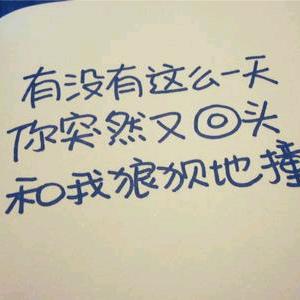 有没有这么一天
你突然又回头
和我狼狈地撞